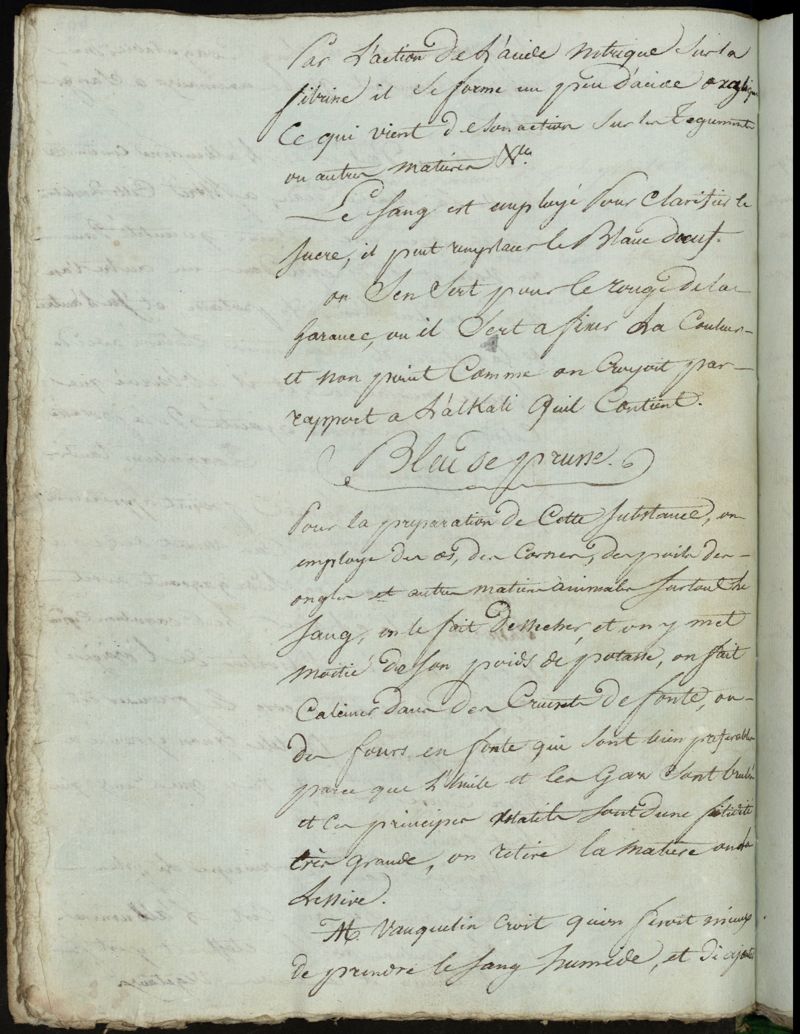 Par l'action de l'acide nitrique sur la
fibrine il se forme un peu d'acide oxalique
Ce qui vient de son action sur les Teguments
ou autres matieres
Le sang est employé pour Clarifier le
sucre, il peut remplacer le Blanc d'oeuf.
on s'en sert pour le rouge de la
garance, ou il sert a fixer la Couleur
et non point Comme on Croyoit par
rapport a l'alkali qu'il Contient.
Bleu de prusse.
Pour la preparation de Cette substance, on
employe des os, des Cornes, des poils des
ongles et autres matieres animales surtout le
sang, on le fait dessecher, et on y met
moitié de son poids de potasse, on fait
Calciner dans des Creusets de fonte, ou
des fours en fonte qui sont bien preferables
parce que l'huile et les Gaz sont brulés
et ces principes volatils sont d'une fetidité
très grande, on retire la matiere on la
lessive.
M. Vauquelin Croit qu'on feroit mieux
de prendre le sang humide, et d'y ajouter